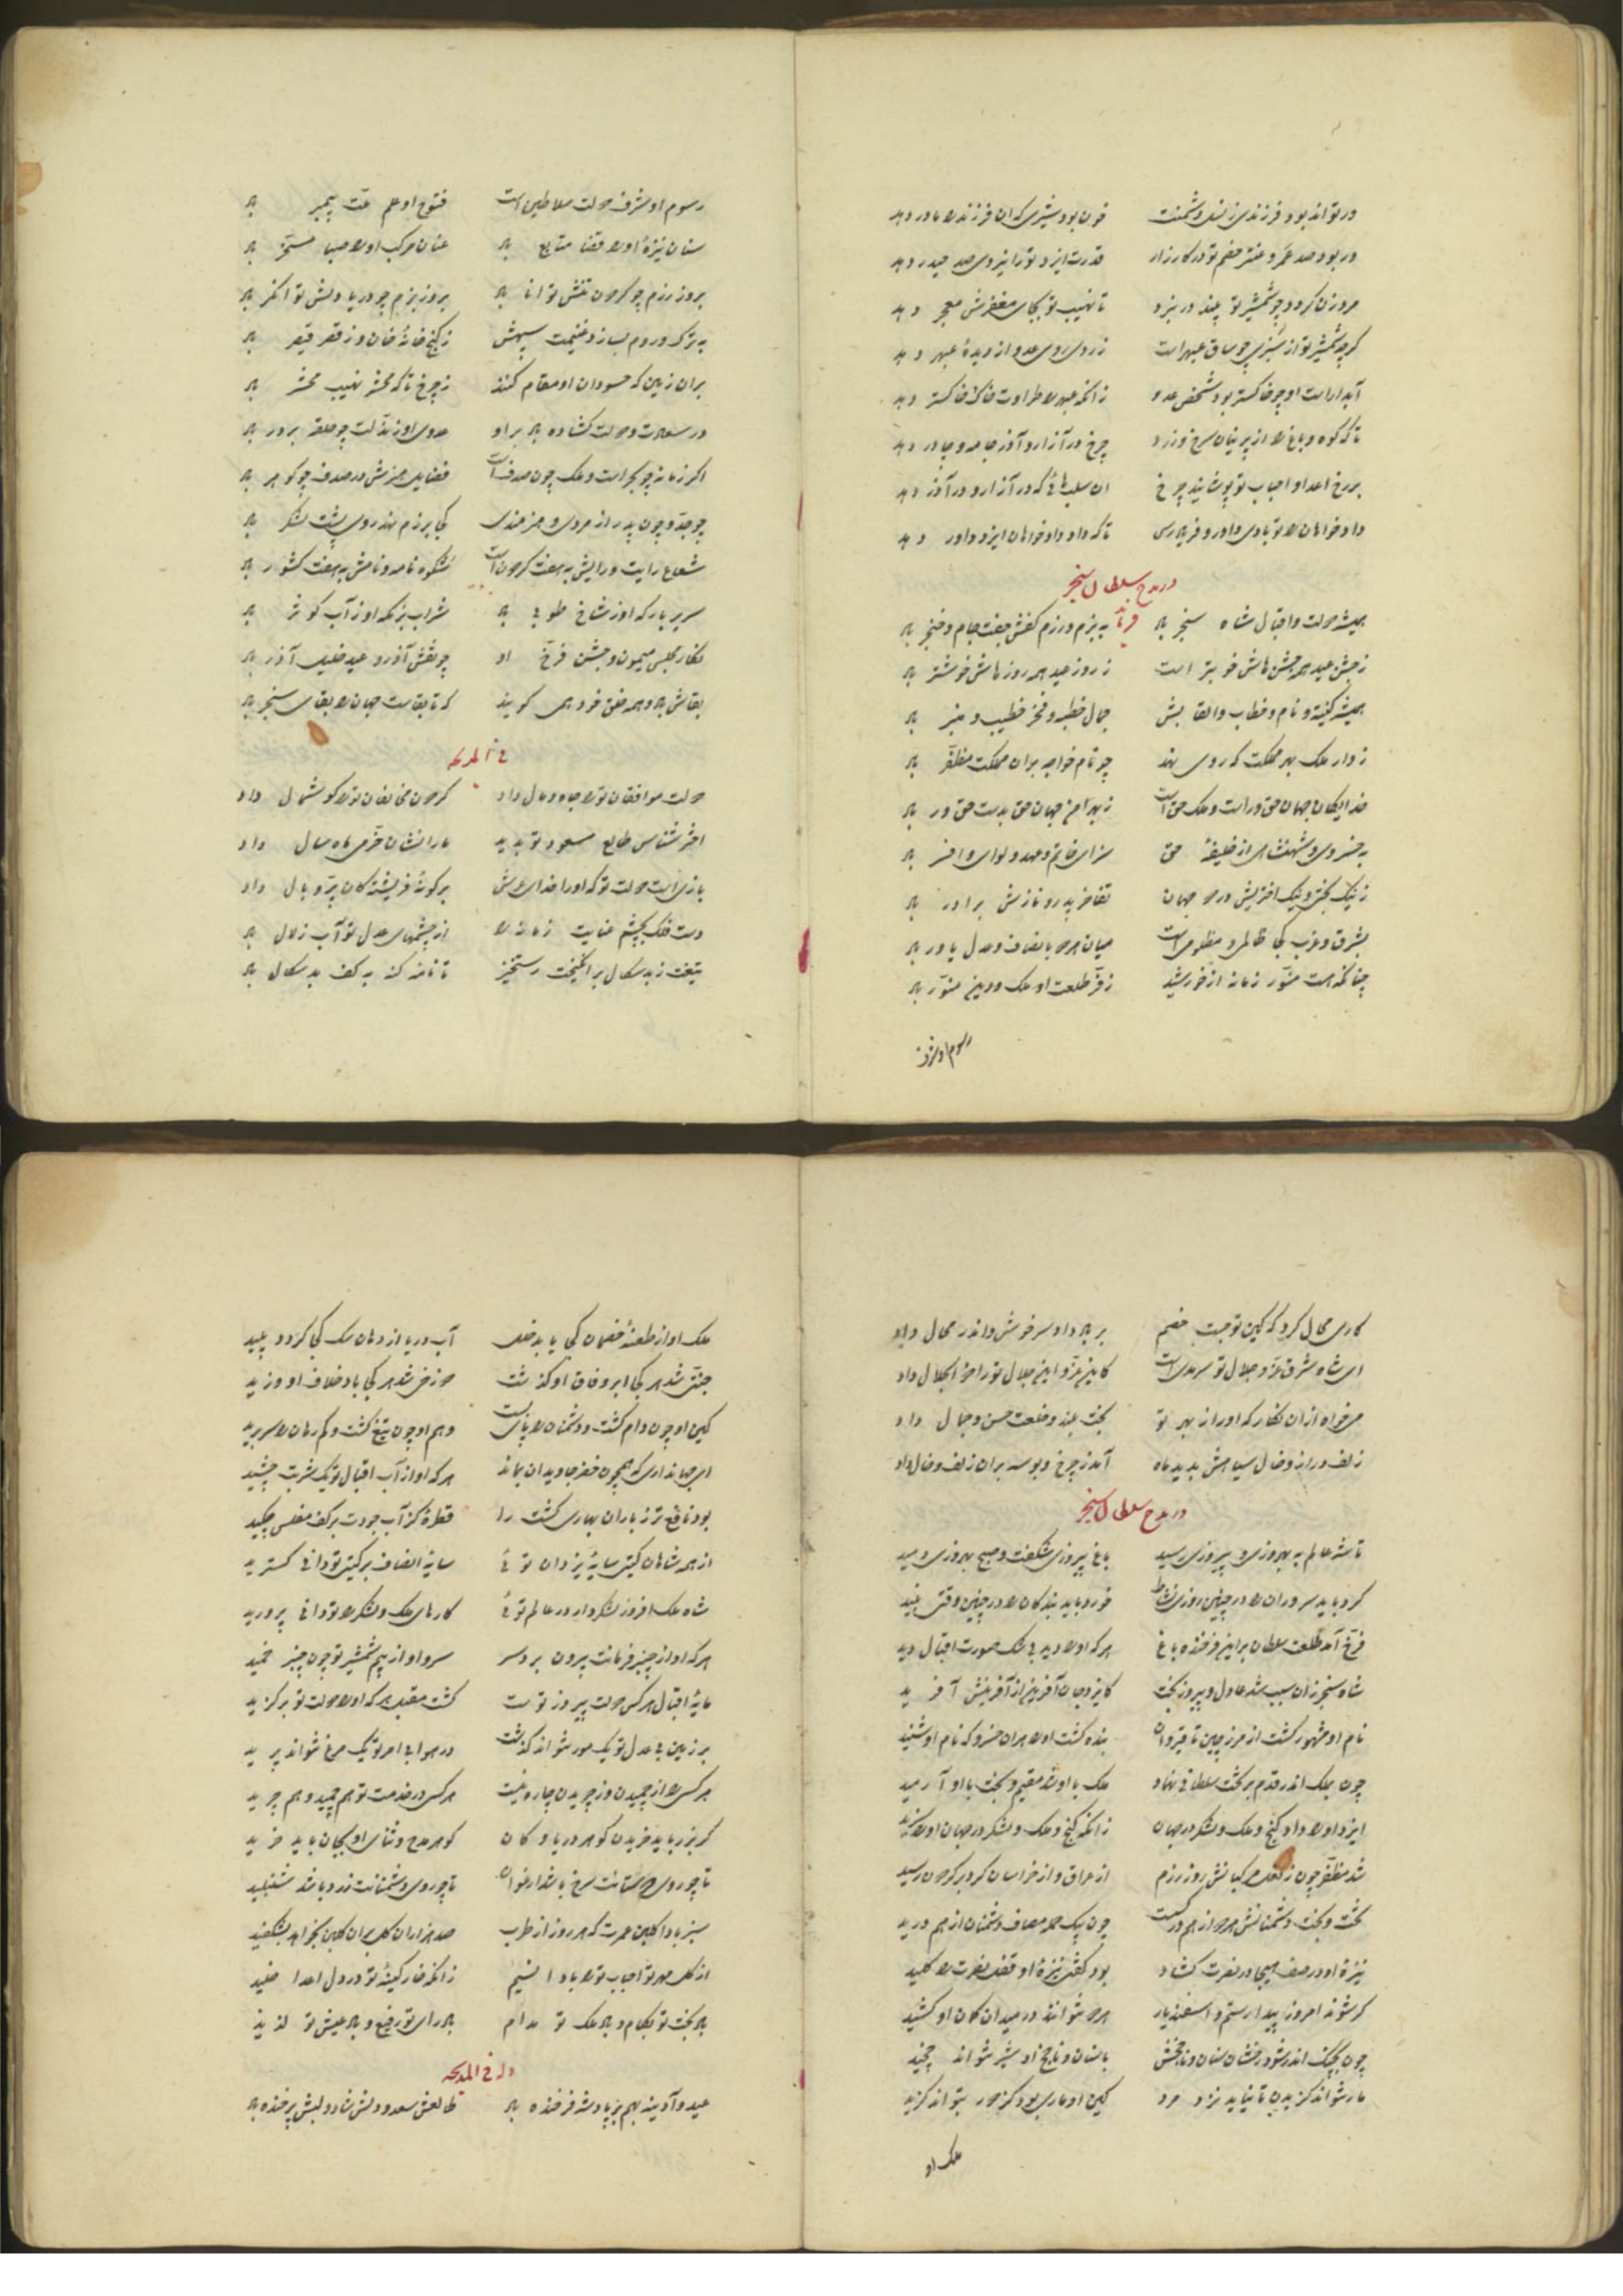 ور تواند بود فرزندی ز نسل دشمنت خون بود شیری که آن فرزند را مادر دهد
ور بود صد عمرو و عنتر خصم تو در کارزار قدرت ایزد ترا نیروی صد حیدر دهد
مرد زن گردد چو شمشیر تو بیند در نبرد تا نهیب تو بجای مغفرش معجر دهد
گرچه شمشیر تو از سبزی چو ساق عبهر است زردی روی عدو از دیدهٔ عبهر دهد
آبدار است او چو خاکستر بود شخص عدو زانکه عبهر را طراوت خاک خاکستر دهد
تا که کوه و باغ را از پرنیان سرخ و زرد چرخ در آزار و آذر جامه و چادر دهد
بر رخ اعدا و احباب تو پوشاند چرخ آن سلبهائی که در آزار و در آذر دهد
دادخواهان را تو بادی داور و فریادرس تا که داد دادخواهان ایزد داور دهد
در مدح سلطان سنجر
همیشه دولت و اقبال شاه سنجر باد به بزم و رزم کفش جفت جام و خنجر باد
ز جشن عید همه جشن هاش خوبتر است ز روز عید همه روزهاش خوشتر باد
همیشه کنیت و نام و خطاب و القابش جمال خطبه و فخر خطیب و منبر باد
ز دار ملک بهر مملکت که روی نهد چو نام خواجه بران مملکت مظفر باد
خدایگان جهان حق ور است و ملک حق است ز بهر امن جهان حق بدست حق ور باد
به خسروی و شهنشاهی از خلیفهٔ حق سزای خاتم و عهد و لوای و افسر باد
ز نیک بختی و نیک اختریش در دو جهان تفاخر پدر و نازش برادر باد
بشرق و غرب کجا ظالم و مظلومی است میان هر دو بانصاف و عدل یاور باد
چنانکه هست منور زمانه از خورشید ز فر طلعت او ملک و دین منور باد
رسوم او شرف
رسوم او شرف دولت سلاطین است فتوح او علم ملت پیمبر باد
سنان نیزهٔ او را قضا متابع باد عنان مرکب او را صبا مسخر باد
بروز رزم چو گردون تنش توانا باد بروز بزم چو دریا دلش توانگر باد
به ترک و روم بساز و غنیمت سپهش ز گنج خانهٔ خان و ز قصر قیصر باد
بران زمین که حسودان او مقام کنند ز چرخ تا که محشر نهیب محشر باد
در سعادت و دولت گشاده باد براو عدوی او ز مذلت چو حلقه بر در باد
اگر زمانه چو بحر است و ملک چون صدف است فضایل هنرش در صدف چو گوهر باد
چو جد و چون پدر از مردی و هنرمندی کجا برزم نهد روی پشت لشکر باد
شعاع رایت و رایش به هفت گردون است شکوه نامه و نامش به هفت کشور باد
سریر بارگه او ز شاخ طوبی باد شراب بزمگه او ز آب کوثر باد
نگار مجلس میمون و جشن فرخ او چو نقش آذر و عید خلیل آذر باد
بقاش باد و همه خلق خود همی گویند که تا بقاست جهان را بقای سنجر باد
فی المدیحه
دولت موافقان تو را جاه و مال داد گردون مخالفان تو را گوشمال داد
اختر شناس طالع مسعود تو بدید ما را نشان خرمی ماه و سال داد
بازی است دولت تو که او را خدای عرش بر گونهٔ فرشتگان پر و بال داد
دست فلک بچشم عنایت زمانه را از چشمهای عدل تو آب زلال داد
تیغت ز بدسگال برانگیخت رستخیز تا نامه گنه به کف بدسگال داد
کاری محال کرد که کین تو جست خصم بر باد داد سر خوش و اندر محال داد
ای شاه شرق عز و جلال تو سرمدی است کاین عز و این جلال تو را ذوالجلال داد
می خواه از آن نگار که او را ز بهر تو بخت بلند و خلعت حسن و جمال داد
زلف دراز و خال سیاهش بدید ماه آمد ز چرخ و بوسه بران زلف و خال داد
در مدح سلطان سنجر
تا شه عالم به بهروزی و پیروزی رسید باغ پیروزی شکفت و صبح بهروزی دمید
کرد باید سروران را در چنین روزی نشاط خورد باید بندگان را در چنین وقتی نبید
فرخ آمد طلعت سلطان براین فرخنده باغ هر که او را دید بی شک صورت اقبال دید
شاه سنجر زان سبب شد عادل و پیروز بخت کایزد جان آفرین از آفرینش آفرید
نام او مشهور گشت از مرز چین تا قیروان بنده گشت او را هران خسرو که نام او شنید
چون بملک اندر قدم بر تخت سلطانی نهاد ملک با او شد مقیم و بخت با او آرمید
ایزد او را داد گنج و ملک و لشکر در جهان زانکه گنج و ملک و لشکر در جهان او را سزید
شد مظفر چون ز کلک کیانش روز رزم از عراق و از خراسان گرد بر گردون رسید
تخت و بخت دشمنانش هر دو از هم درگسست چون بیک حمله مصاف دشمنان از هم درید
نیزهٔ او در صف هیجا در نصرت گشاد بود گفتی نیزهٔ او قفل نصرت را کلید
گر شوند امروز پیدا رستم و اسفندیار هر دو نتوانند در میدان کمان او کشید
چون بجنگ اندر شود رخشان سنان و ناچخش با سنان و ناچخ او شیر نتواند چخید
مار نتواند گزیدن تا نیاید نزد مرد کین او ماری بود کز دور بتواند گزید
ملک او
ملک او از طعنهٔ خصمان کجا یابد خلل آب دریا از دهان سگ کجا گردد پلید
جنتی شد هر کجا ابر وفاق او گذشت دوزخی شد هر کجا باد خلاف او وزید
کین او چون دام گشت و دشمنان را پای بست وهم او چون تیغ گشت و گمرهان را سر برید
ای جهانداری که همچون خضر جاویدان بماند هر که او از آب اقبال تو یک شربت چشید
بود نافع تر ز باران بهاری کشت را قطرهٔ کز آب جودت بر کف مفلس چکید
از همه شاهان گیتی سایهٔ یزدان توئی سایهٔ انصاف بر گیتی تو دانی گسترید
شاه ملک افروز لشکردار در عالم توئی کارهای ملک و لشکر را تو دانی پرورید
هر که او از چنبر فرمانت بیرون برد سر سرو او از بیم شمشیر تو چون چنبر خمید
مایهٔ اقبال هر کس دولت پیروز توست گشت مقبل هر که او را دولت تو برگزید
بر زمین بی عدل تو یک مور نتواند گذشت در هوا بی امر تو یک مرغ نتواند پرید
هر کس را از چمیدن وز چریدن چاره نیست هر کس در خدمت تو هم چمید و هم چرید
گر بزر باید خریدن گوهر دریا و کان گوهر مدح و ثنای او بجان باید خرید
تا چو روی دوستانت سرخ باشد ارغوان تا چو روی دشمنانت زرد باشد شنبلید
سبز بادا گلبن عمرت که هر روز از طرب صد هزاران گل بران گلبن بخواهد بشکفید
از گل مهر تو احباب تو را بادا نسیم زانکه خار کینهٔ تو در دل اعدا خلید
باد بخت تو بکام و باد ملک تو مدام باد رای تو رفیع و باد عیش تو لذیذ
وله فی المدیحه
عید و آدینه بهم بر پادشه فرخنده باد طالعش سعد و دلش شاد و لبش پرخنده باد